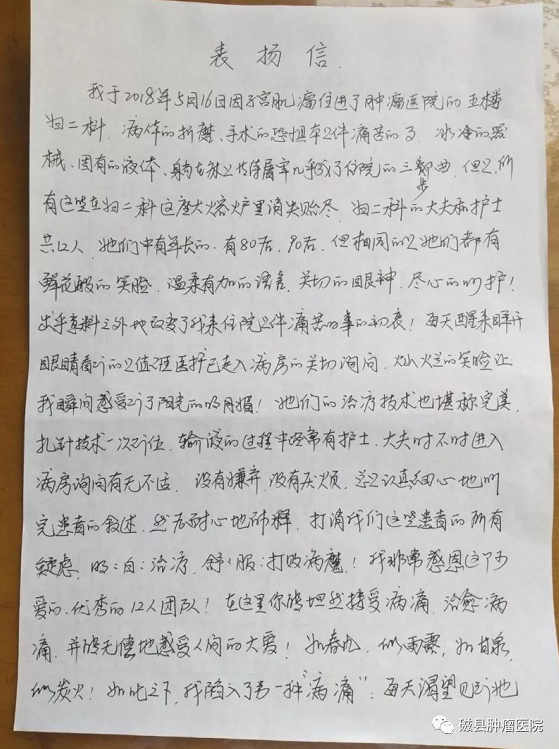 表扬信.
我于2018年5月16日因子宫肌瘤住进了肿瘤医院的五楼
妇二科. 病体的折磨、手术的恐惧本是件痛苦的事. 冰冷的器
械、固有的液体、躺在床上等待属牢几乎成了住院的三部曲. 但是, 所
步
有这些在妇二科这座大熔炉里消失贻尽. 妇二科的大夫和护士
共12人, 她们中有年长的. 有80后、90后, 但相同的是她们都有
鲜花般的笑脸, 温柔有加的语言、关切的眼神、尽心的呵护!
出乎意料之外地改变了我来住院是件痛苦的事的初衷! 每天醒来睁开
眼睛看到的是值班医护已走入病房的关切询问, 灿烂的笑脸让
我瞬间感受到了阳光的明媚! 她们的治疗技术也堪称完美,
扎针技术一次到位, 输液的过程中经常有护士、大夫时不时进入
病房询问有无不适, 没有嫌弃、没有厌烦, 总是认真细心地听
完患者的叙述, 然后耐心地解释, 打消我们这些患者的所有
疑虑, 明明白白治疗, 舒舒服服打败病魔! 我非常感恩这个可
爱的、优秀的12人团队! 在这里你能坦然接受病痛, 治愈病
痛, 并能无偿地感受人间的大爱! 如春风, 似雨露, 如甘泉,
似炭火! 如此之下, 我陷入了另一种"病痛": 每天渴望见到她
磁县肿瘤医院